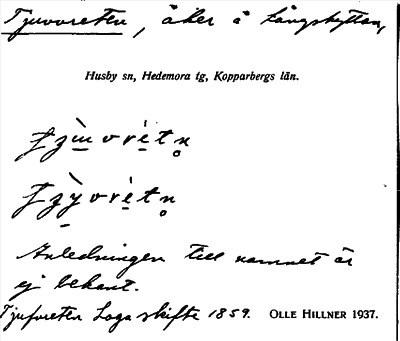 Tjuvoreten, åker å Långshyttan,
Husby sn, Hedemora tg, Kopparbergs län.
Anledningen till namnet är
ej bekant.
Tjuforeten Laga skifte 1859. OLLE HILLNER 1937.